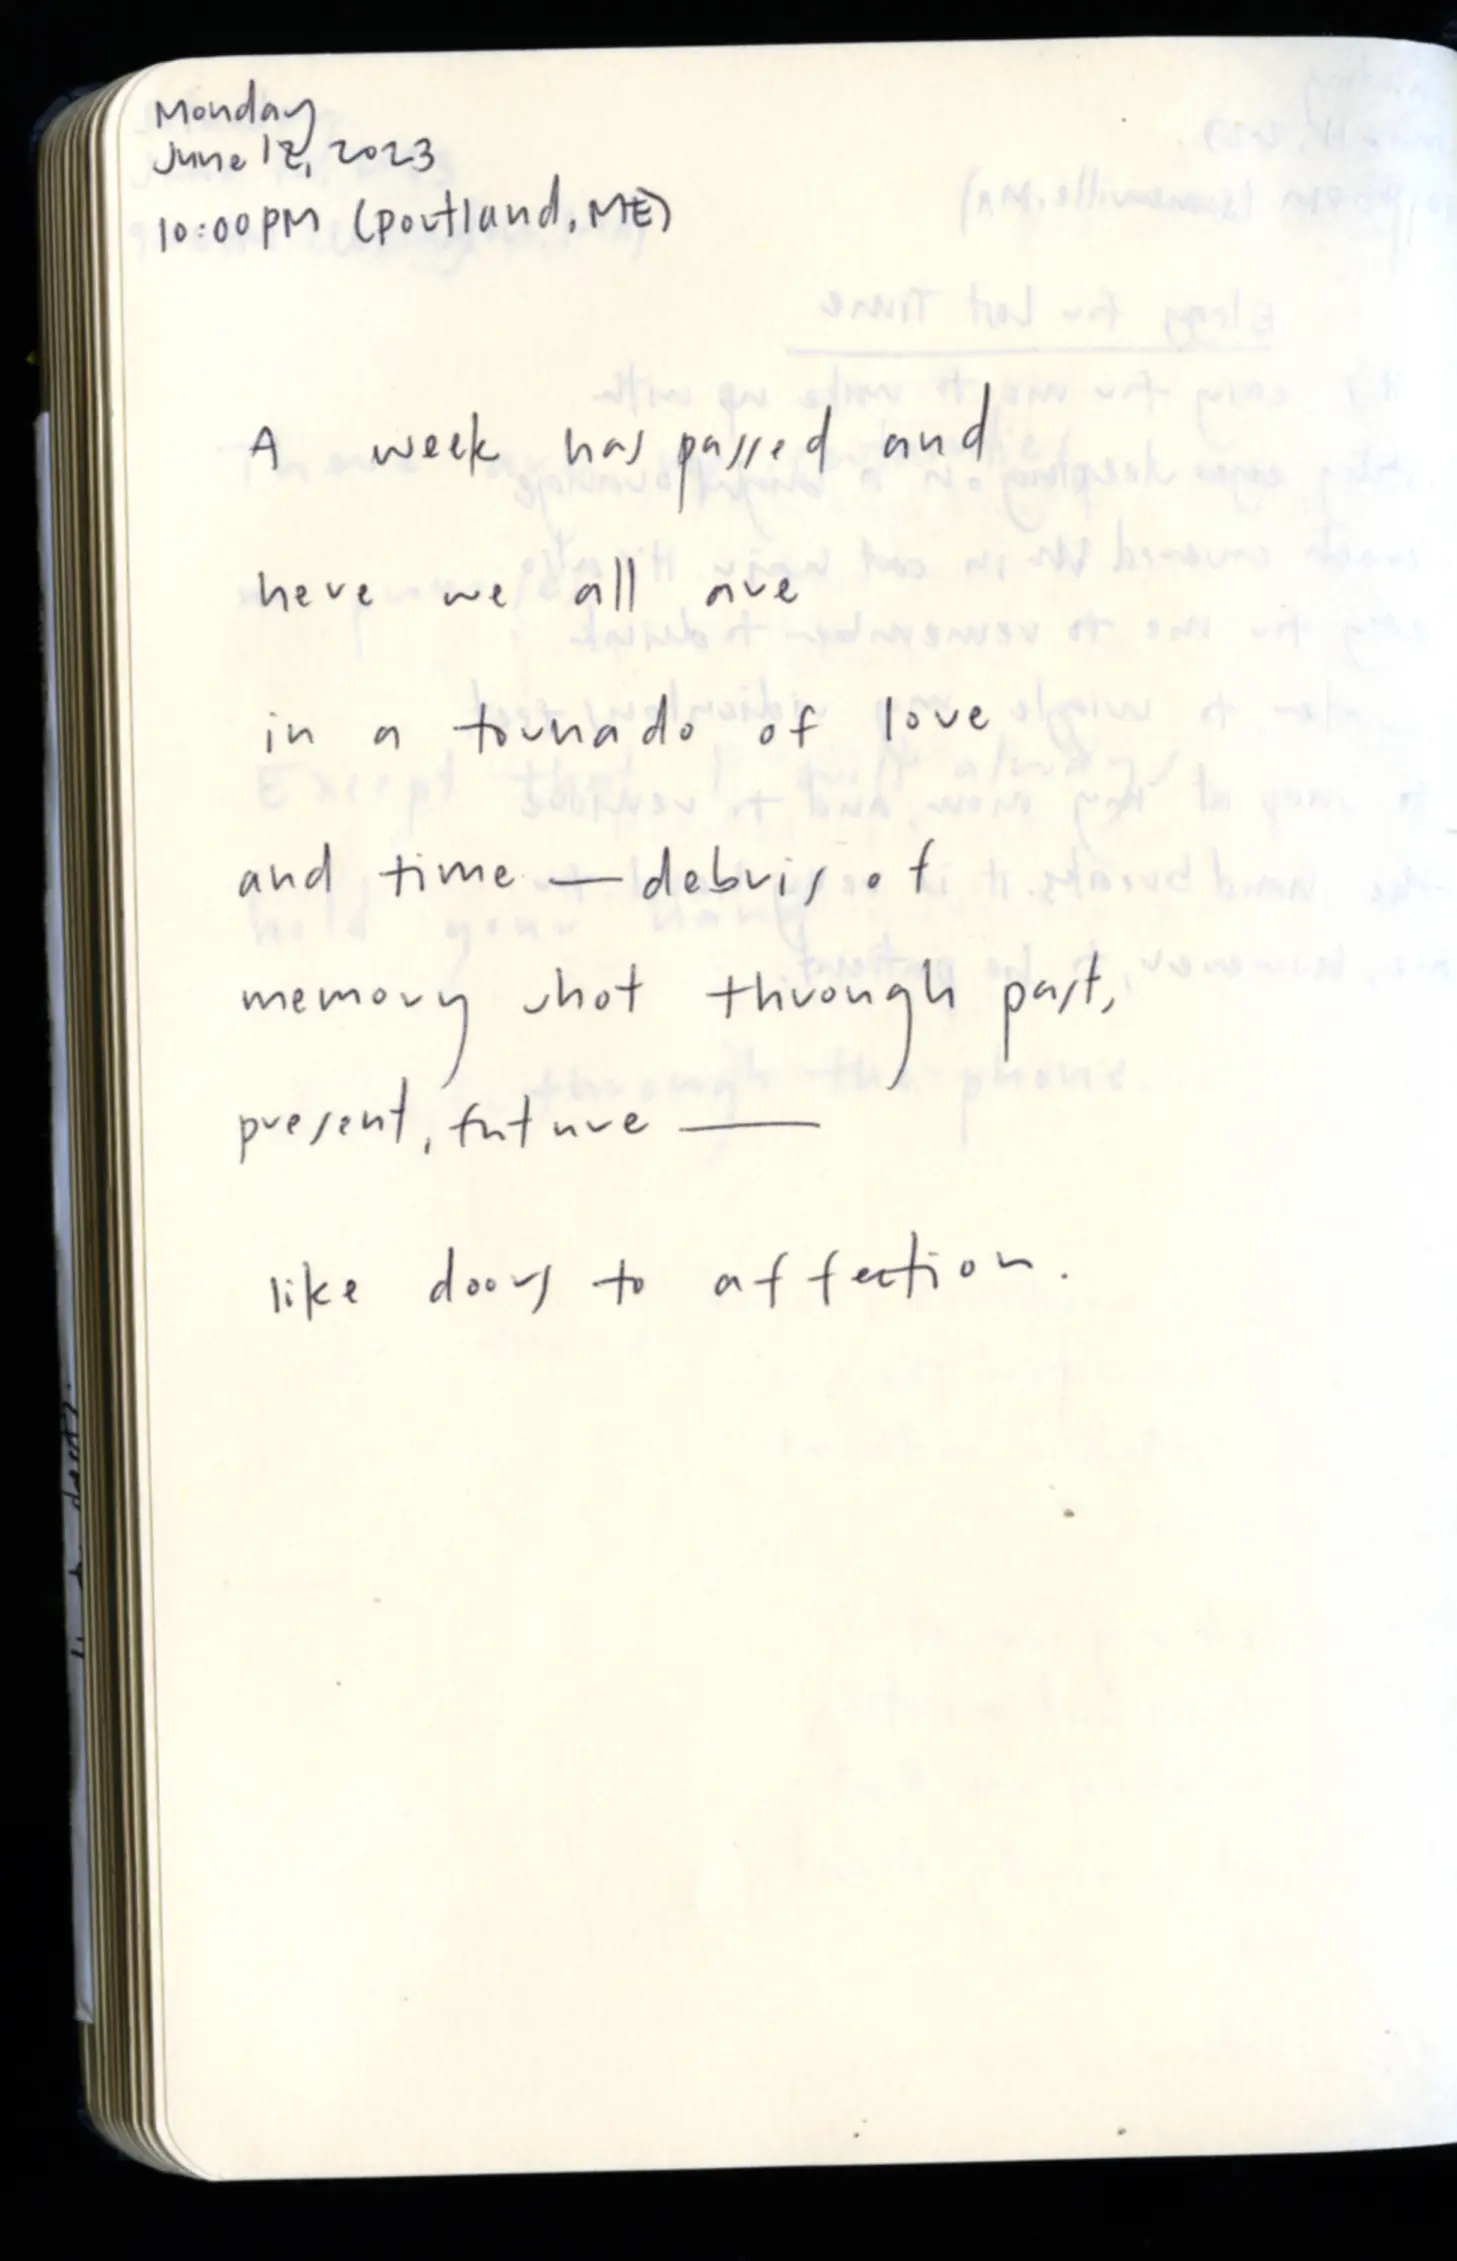 Monday
June 12, 2023
10:00 PM (Portland, ME)
A week has passed and
here we all are
in a tornado of love
and time — debris of
memory shot through past,
present, future —
like doors to affection.